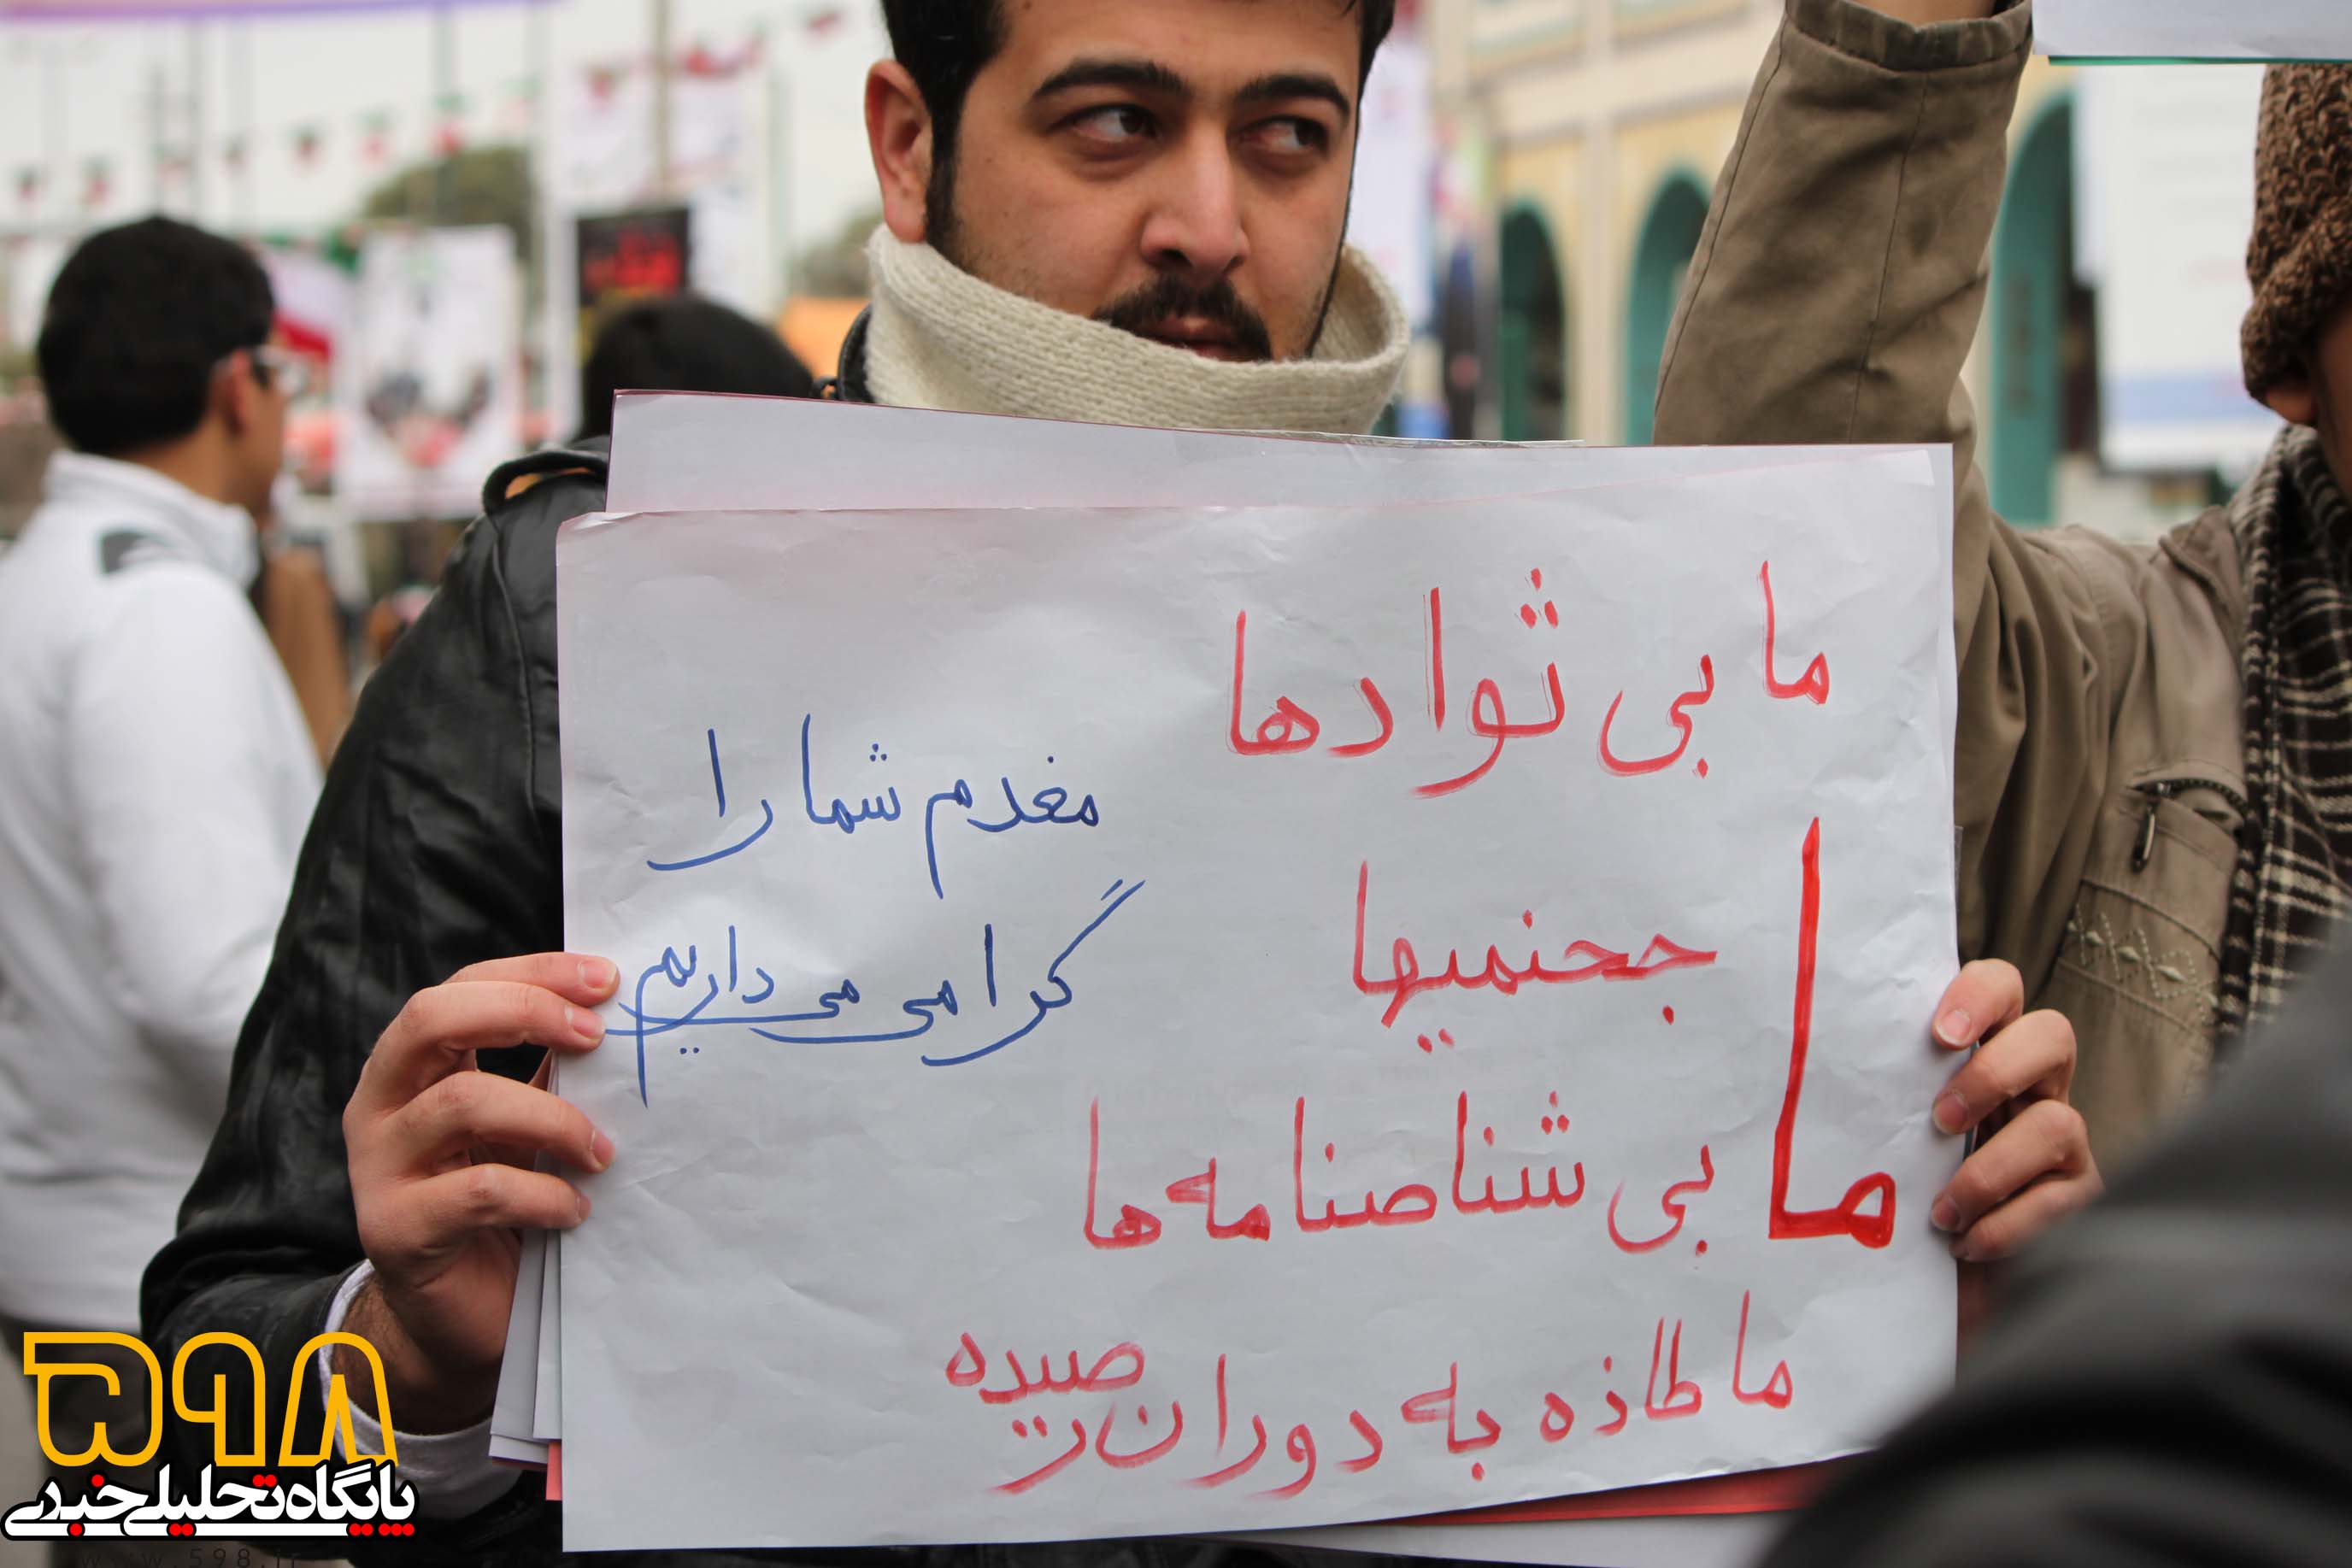 ما بی ثوادها
ما
جحنمیها
ما بی شناصنامه‌ها
ما طاذه به دوران ریصیده
مغدم شما را
گرامی می داریم
۵۹۸
پایگاه تحلیلی خبری
www.598.ir